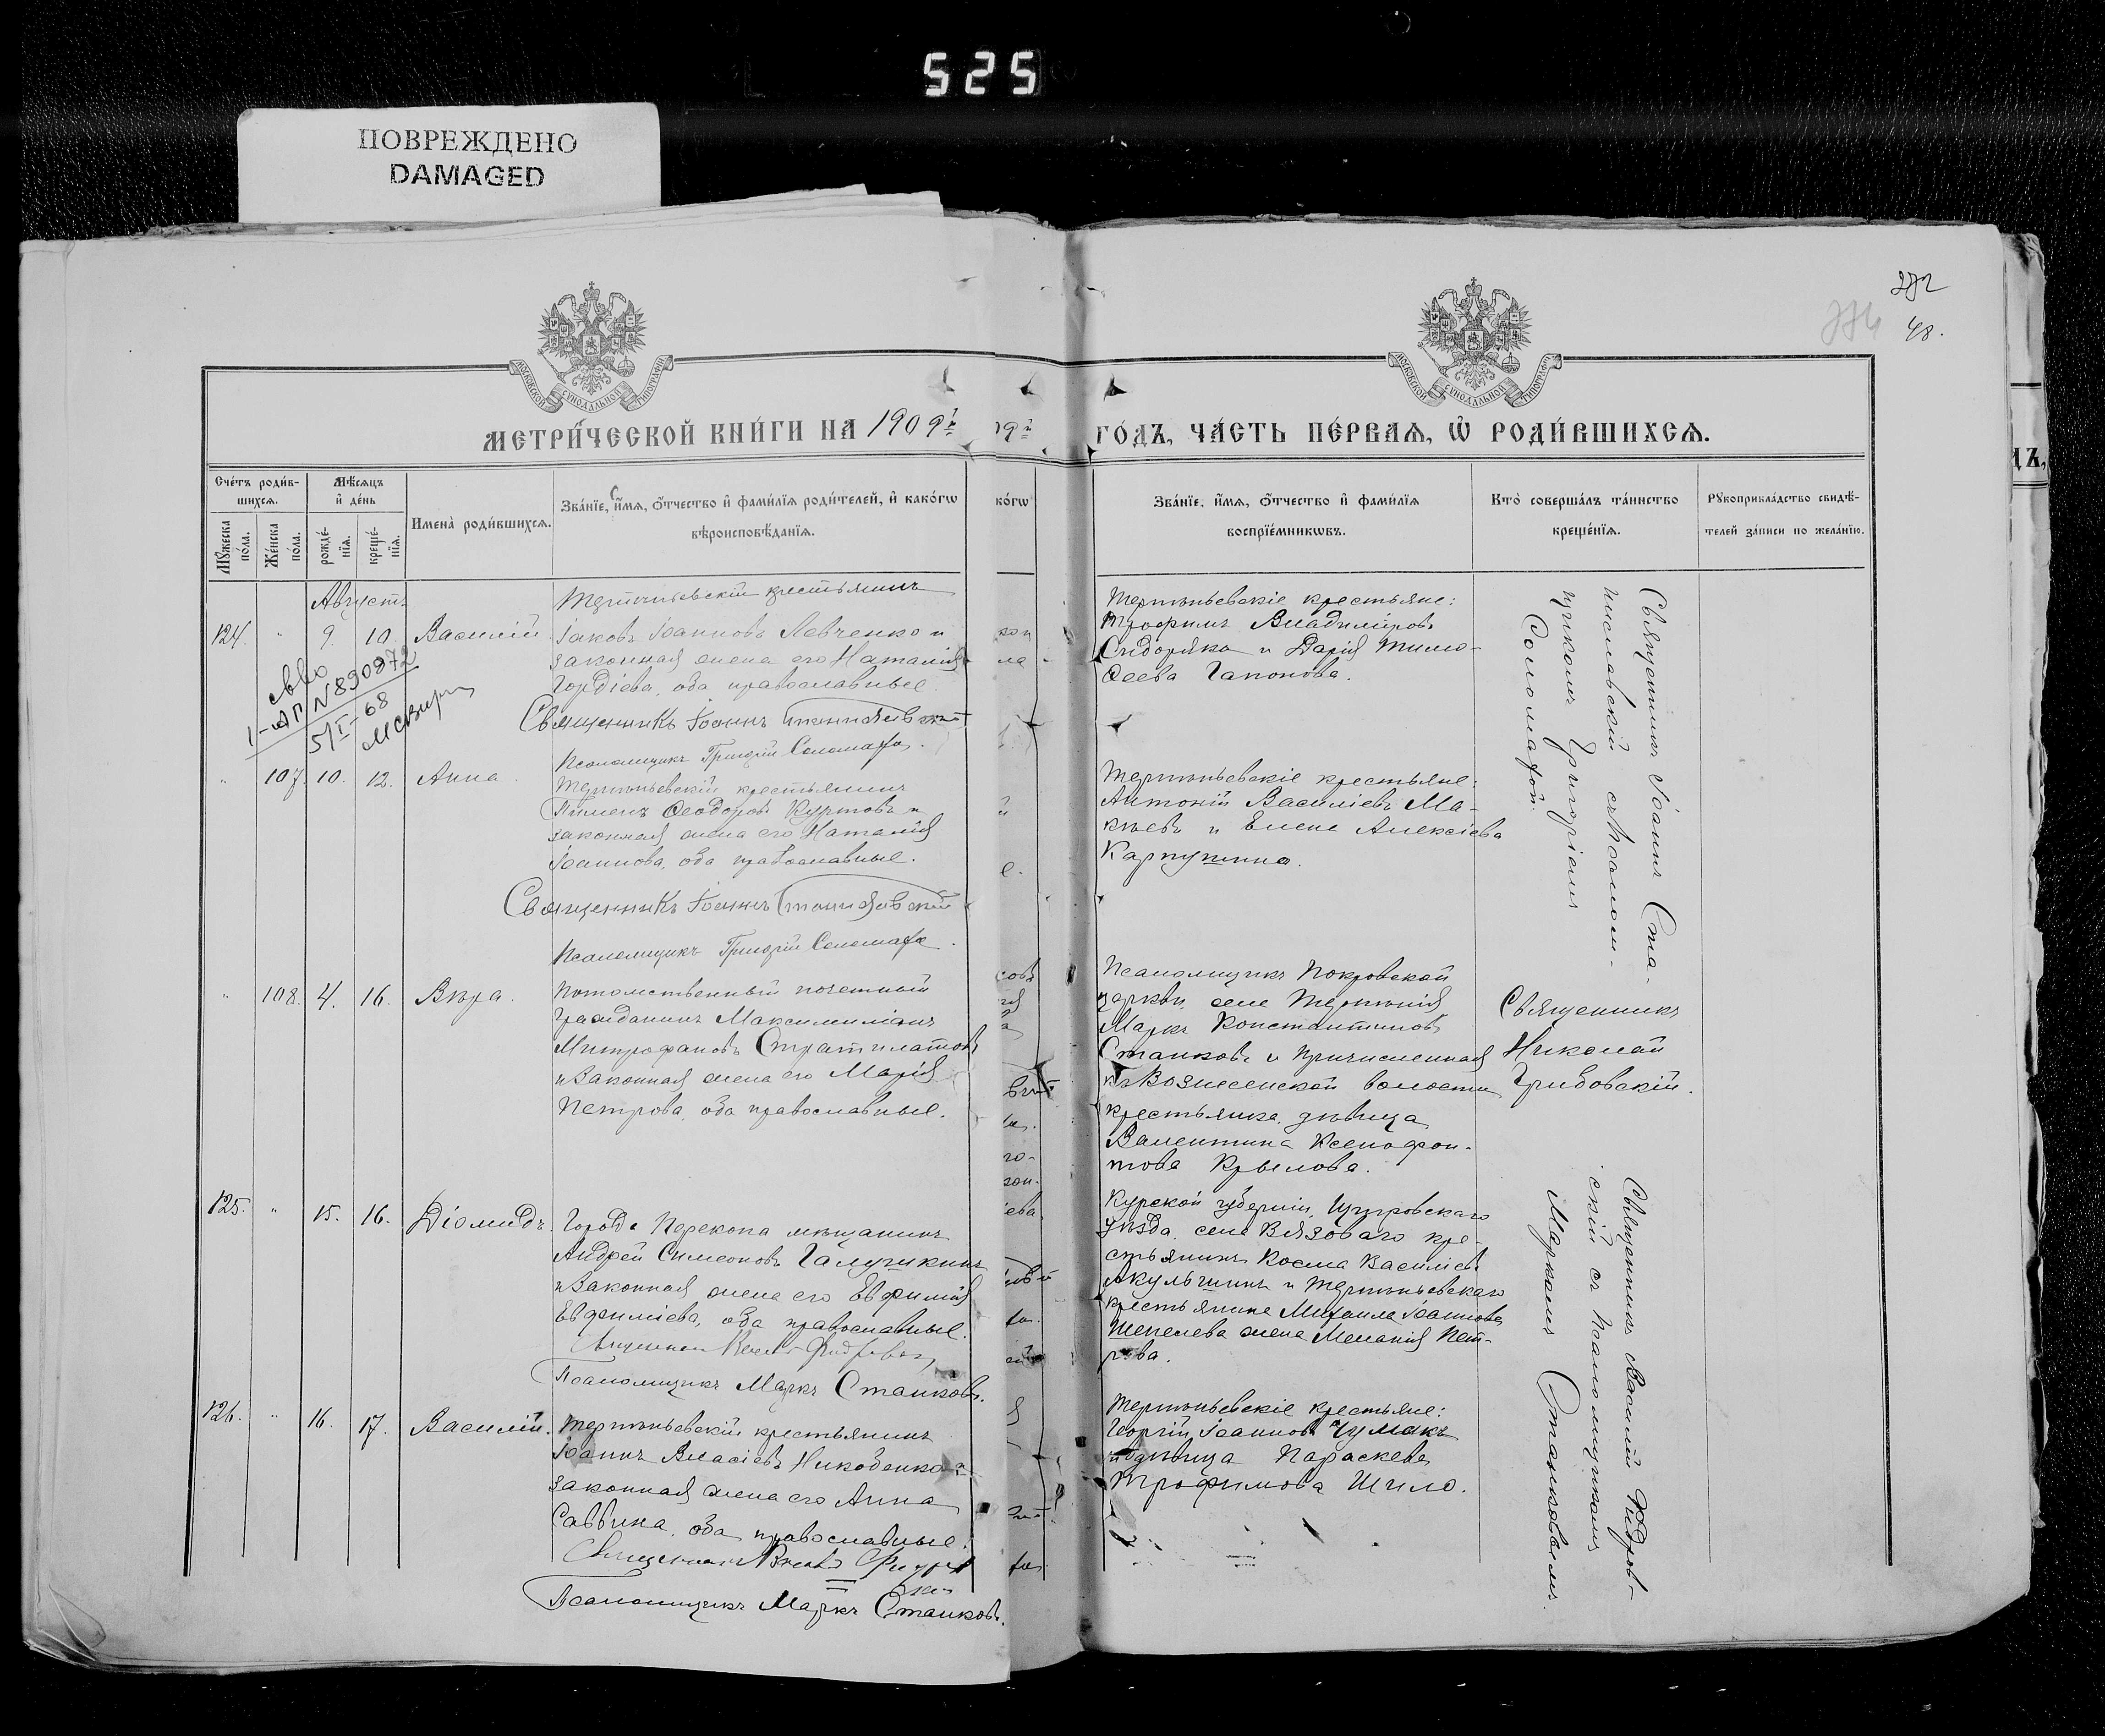 525
ПОВРЕЖДЕНО
DAMAGED
282
48.
МОСКОВСКОЙ СѴНОДАЛЬНОЙ ТИПОГРАФІИ
МОСКОВСКОЙ СѴНОДАЛЬНОЙ ТИПОГРАФІИ
МЕТРИ́ЧЕСКОЙ КНИ́ГИ НА 1909й
9й
ГО́ДЪ, ЧА́СТЬ ПЕ́РВАѦ, Ѡ҆ РОДИ́ВШИХСѦ.
Сче́тъ роди́в-
шихсѧ.
Мѣ́сѧцъ
и҆ де́нь
Мꙋ́жеска
по́ла.
Же́нска
по́ла.
рожде́-
нїѧ.
креще́-
нїѧ.
Имена̀ роди́вшихсѧ.
Зва́нїе, и҆́мѧ, ѻ҆́тчество и҆ фами́лїѧ роди́телей, и҆ како́гѡ
вѣроисповѣ́данїѧ.
ко́гѡ
Зва́нїе, и҆́мѧ, ѻ҆́тчество и҆ фами́лїѧ
воспрїе́мникѡвъ.
Кто̀ соверша́лъ та́инство
креще́нїѧ.
Рꙋкоприкла́дство свидѣ́-
телей за́писи по жела́нїю.
Августъ
124. " 9. 10. Василій.
крестьянинъ
Іаковъ Іоанновъ Левченко и
законная жена его Наталія
Гордіева, оба православные.
Священникъ Іоаннъ Станиславскій
Псаломщикъ Григорій Соломаха.
св-во
1-АП N 890872
5/I-68
крестьяне:
Трофимъ Владиміровъ
Сидоряка и Дарія Тимо-
ѳеева Гапонова.
Священникъ Іоаннъ Ста-
ниславскій съ псалом-
щикомъ Григоріемъ
Соломахой.
" 107. 10. 12. Анна.
крестьянинъ
Пименъ Ѳеодоровъ Куртовъ и
законная жена его Наталія
Іоаннова, оба православные.
Священникъ Іоаннъ Станиславскій
Псаломщикъ Григорій Соломаха.
крестьяне:
Антоній Василіевъ Ма-
кѣевъ и Елена Алексіева
Карпушина.
" 108. 4. 16. Вѣра.
Потомственный почетный
гражданинъ Максимиліанъ
Митрофановъ Стратилатовъ
и законная жена его Марія
Петрова, оба православные.
Псаломщикъ Покровской
церкви, села
Маркъ Константиновъ
Станковъ и причисленная
къ Вознесенской волости
крестьянка, дѣвица
Валентина Ксенофон-
това Крылова.
Священникъ
Николай
Грибовскій.
125. " 15. 16. Діомидъ.
Города Перекопа мѣщанинъ
Андрей Симеоновъ Галушкинъ
и законная жена его Евфимія
Евфиміева, оба православные.
Псаломщикъ Маркъ Станковъ.
Курской губерніи, Щигровскаго
уѣзда, села Вязоваго кре-
стьянинъ Косма Василіевъ
Акульшинъ и
крестьянина Михаила Іоаннова
Шепелева жена Меланія Пет-
рова.
Священникъ Василій Федров-
скій съ псаломщикомъ
Маркомъ Станковымъ.
126. " 16. 17. Василій.
крестьянинъ
Іоаннъ Власіевъ Никобенко и
законная жена его Анна
Саввина, оба православные.
Псаломщикъ Маркъ Станковъ.
крестьяне:
Георгій Іоанновъ Чумакъ
и дѣвица Параскева
Трофимова Шило.